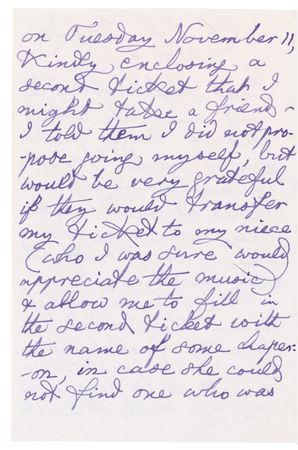 on Tuesday November 11,
Kindly enclosing a
second ticket that I
might take a friend -
I told them I did not pro-
pose going myself, but
would be very grateful
if they would transfer
my ticket to my niece
(who I was sure would
appreciate the music)
& allow me to fill in
the second ticket with
the name of some chaper-
-on, in case she could
not find one who was